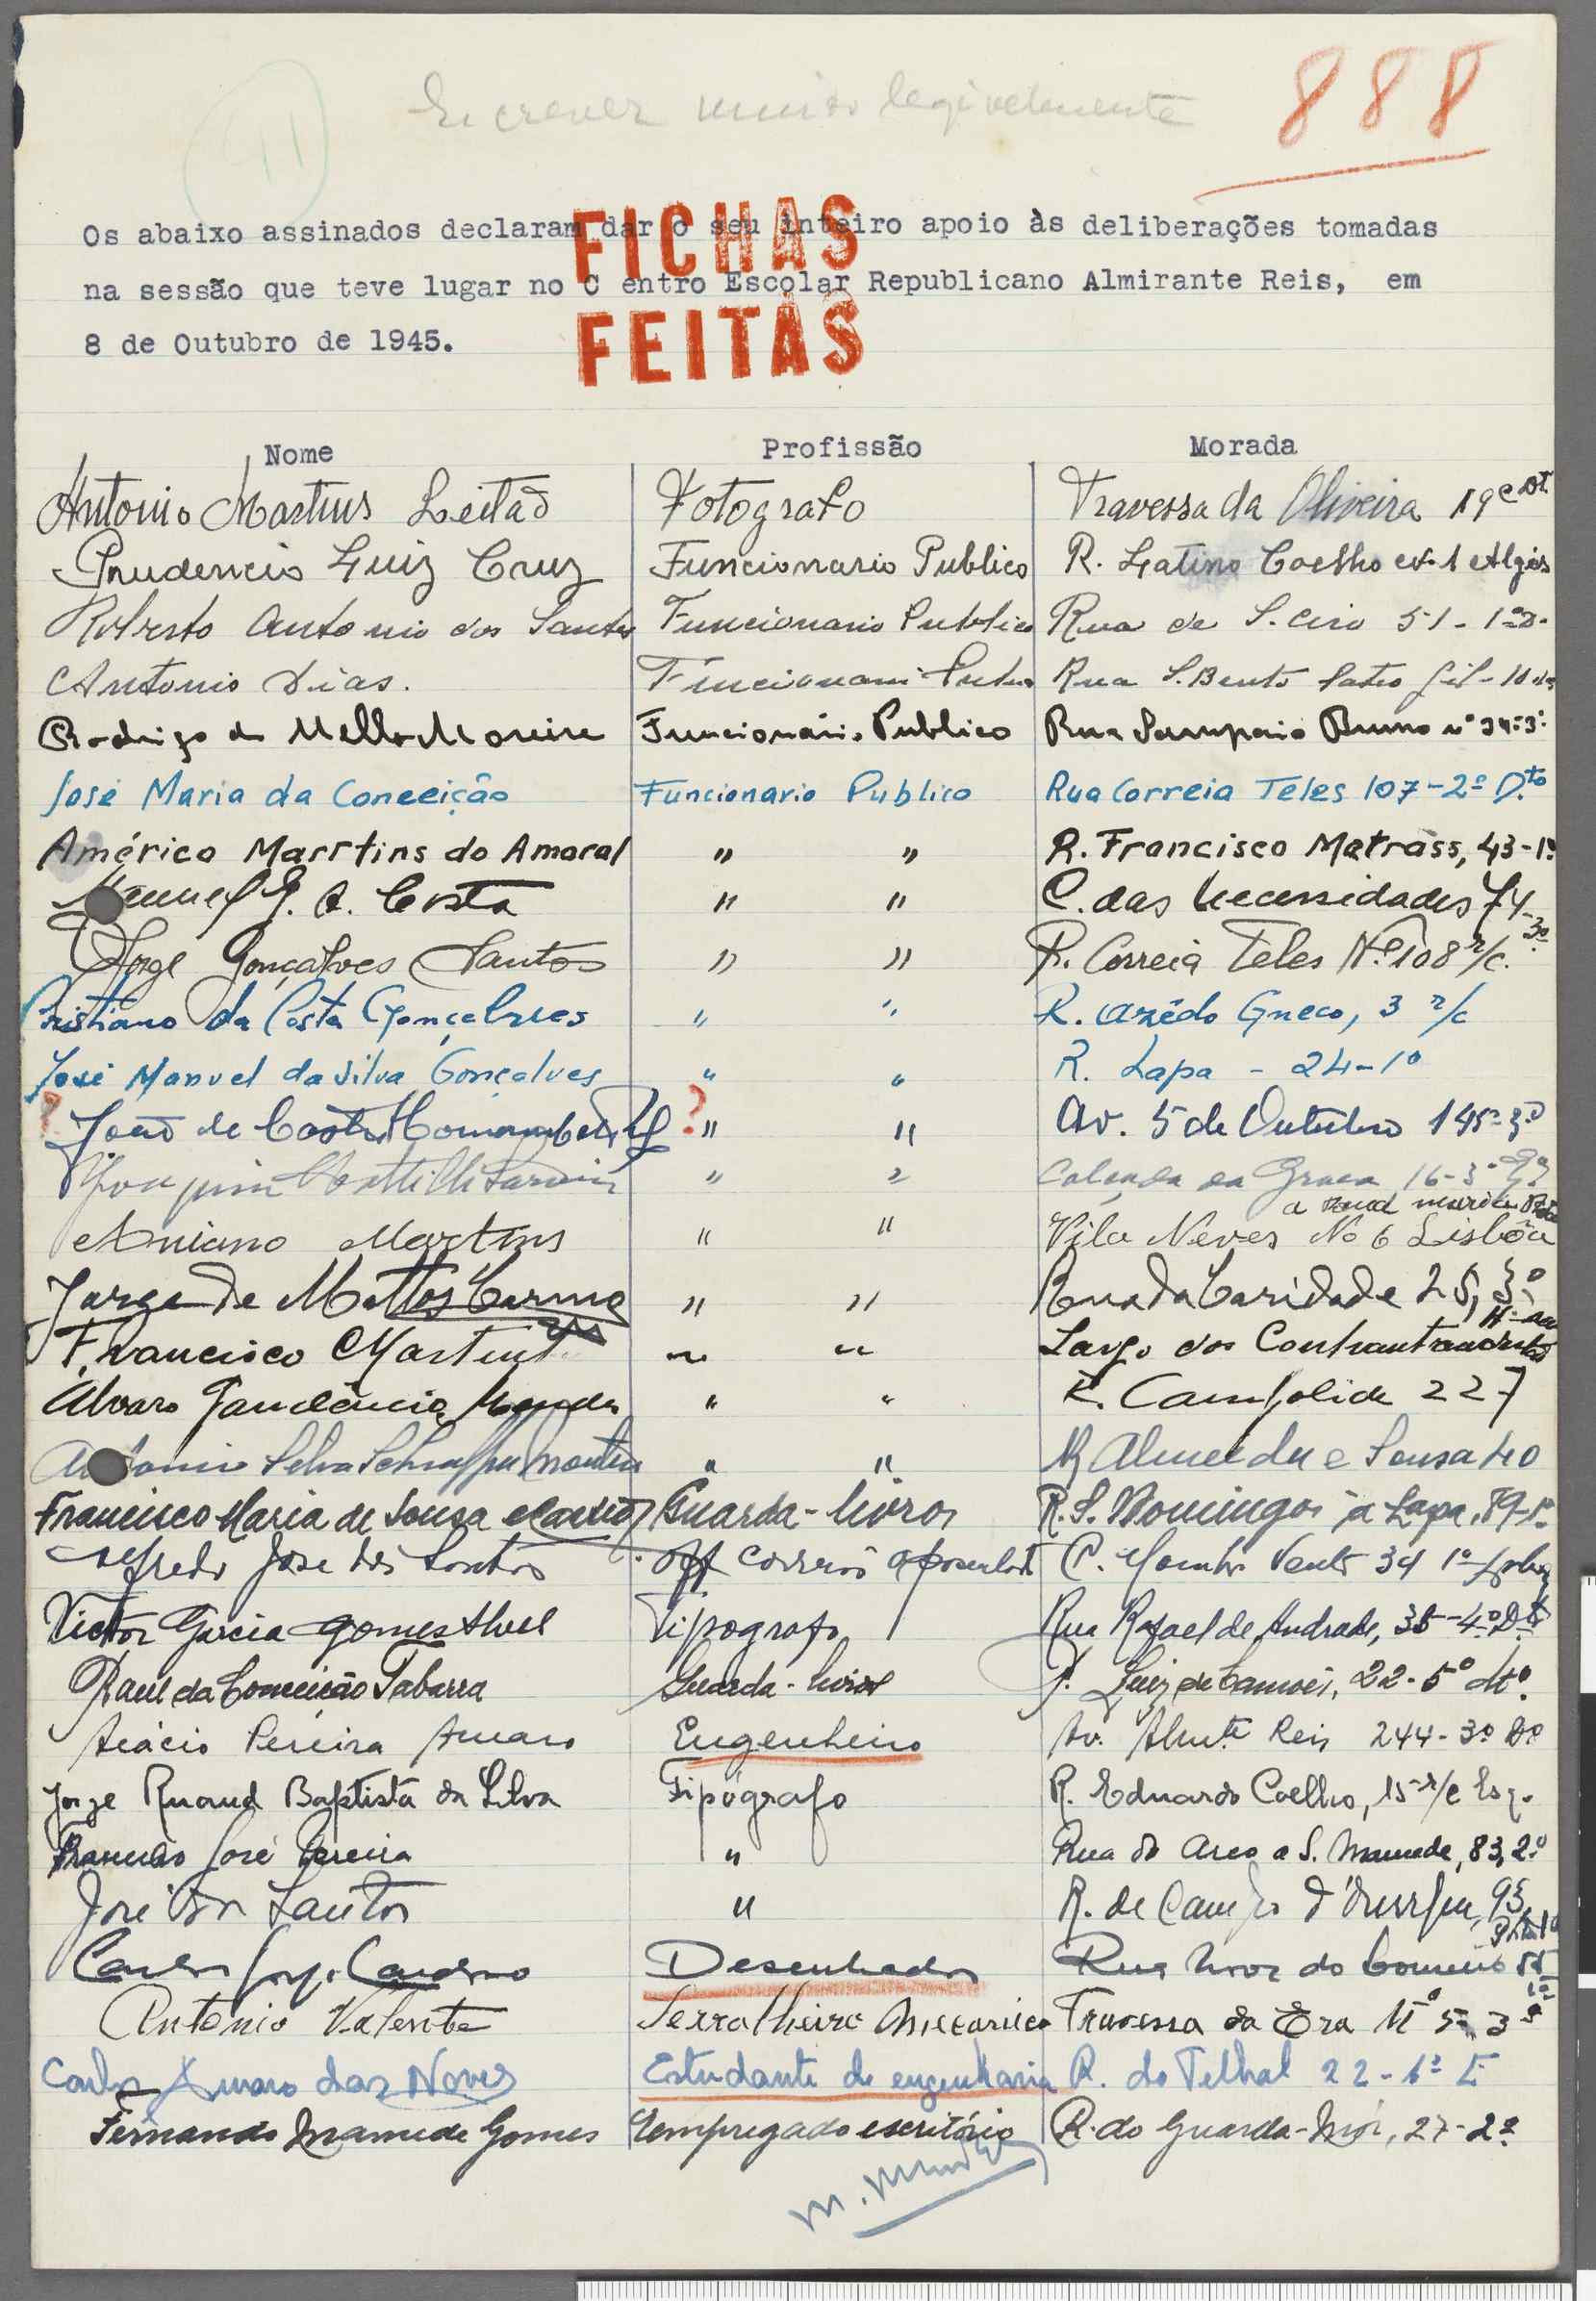 Escrever muito legivelmente
888
11
Os abaixo assinados declaram dar o seu inteiro apoio às deliberações tomadas
na sessão que teve lugar no C entro Escolar Republicano Almirante Reis, em
8 de Outubro de 1945.
FICHAS
FEITAS
Nome Profissão Morada
Antonio Martins Leitão Fotografo Travessa da Oliveira 19
Prudencio Luiz Cruz Funcionario Publico R. Latino Coelho Algés
Roberto Antonio dos Santos Funcionario Publico Rua de S. Ciro 51-1º D.
Antonio Dias. Rua S. Bento Pateo Gil-10
Rodrigo de Mello Moreira Funcionário Publico Rua Sampaio Bruno nº 34-3º
José Maria da Conceição Funcionario Publico Rua Correia Teles 107-2º D.to
Américo Marrtins do Amaral " " R. Francisco Matrass, 43-1º
Manuel G. A. Costa " " C. das Necessidades 74-3º
Jorge Gonçalves Santos " " R. Correia Teles Nº 108 r/c.
Cristiano da Costa Gonçalves " " R. Azêdo Gneco, 3 r/c
José Manuel da Silva Gonçalves " " R. Lapa - 24-1º
? João de Castro ? " " Av. 5 de Outubro 145-3º
Joaquim " " Calçada da Graca 16-3º
a rua maria Pia
Aniano Martins " " Vila Neves No 6 Lisbôa
Jorge de Mattos " " Rua da Caridade 25, 3º
Francisco Martins " " Largo do
Alvaro Gaudêncio Mendes " " R. Campolide 227
Antonio Silva " " R Almeida e Sousa 40
Francisco Maria de Sousa Guarda-livros R. S. Domingos à Lapa, 89-1º
Alfredo José dos Santos correios aposentado C. 34 1º
Victor Garcia Gomes Tipografo Rua Rafael de Andrade, 35-4º Dt
Raul da Conceição Tabarra Guarda-livros P. Luiz de Camões, 22-5º dtº.
Acácio Pereira Amaro Engenheiro Av. Almte Reis 244-3º Dº
Jorge Ruaud Baptista da Silva Tipógrafo R. Eduardo Coelho, 15-r/c Esq.
Francisco José Pereira " Rua do Arco a S. Mamede, 83, 2º
José dos Santos " R. de Campo d'Ourique, 95
Carlos Jorge Cardoso Desenhador Rua Nova do
Antonio Valente Serralheiro Mecanico Travessa da Era Nº 5-3º
Carlos Amaro das Neves Estudante de engenharia R. do Telhal 22-1º E
Fernando Mamede Gomes Empregado escritório R. do Guarda-Mór, 27-2º
M. Mendes